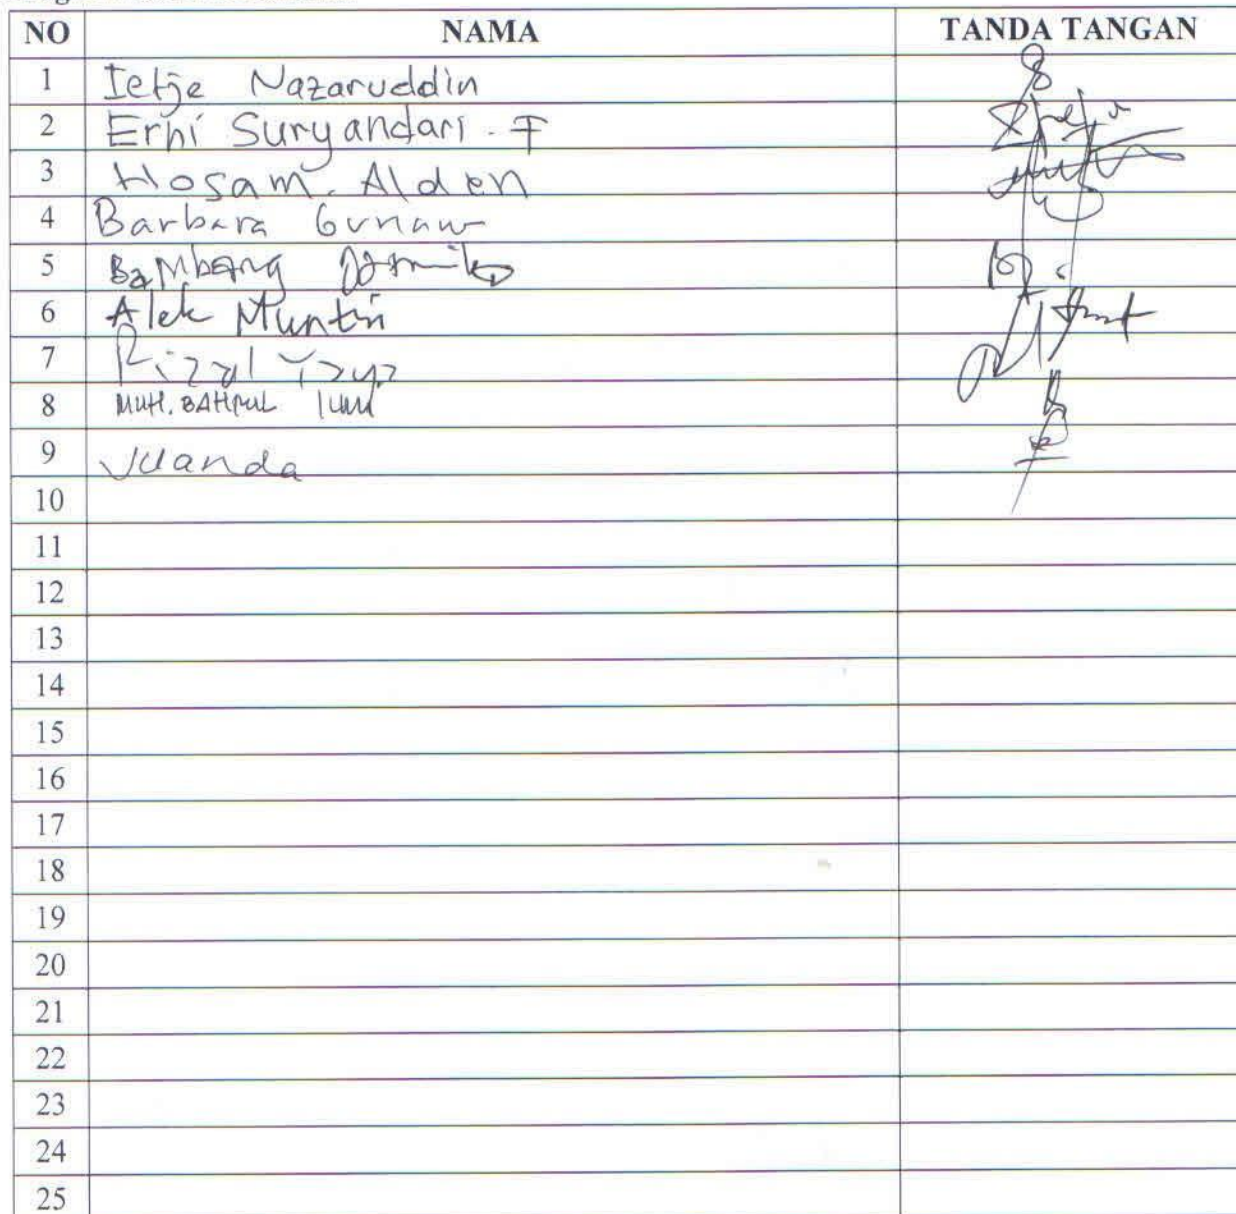 NO NAMA TANDA TANGAN
1 Ietje Nazaruddin
2 Erni Suryandari . F
3 Hosam. Alden
4 Barbara Gunaw
5 Bambang Jatmiko
6 Alek Muntin
7 Rizal Yaya
8 MUH. BAHRUL
9 Juanda
10
11
12
13
14
15
16
17
18
19
20
21
22
23
24
25